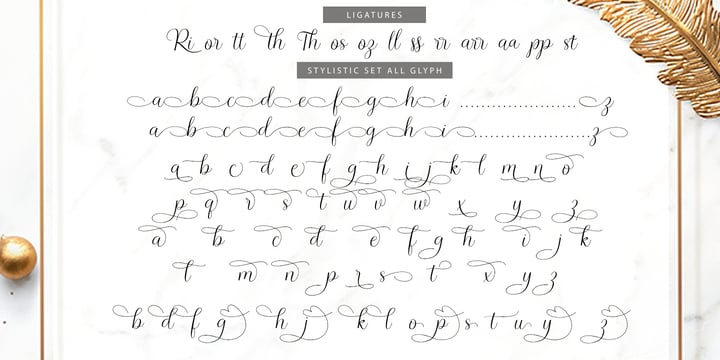 LIGATURES
Ri or tt th Th os oz ll ss rr arr aa pp st
STYLISTIC SET ALL GLYPH
a b c d e f g h i ..................... z
a b c d e f g h i ..................... z
a b c d e f g h i j k l m n o
p q r s t u v w x y z
a b c d e f g h i j k
l m n p r s t x y z
b d f g h j k l o p s t u y z